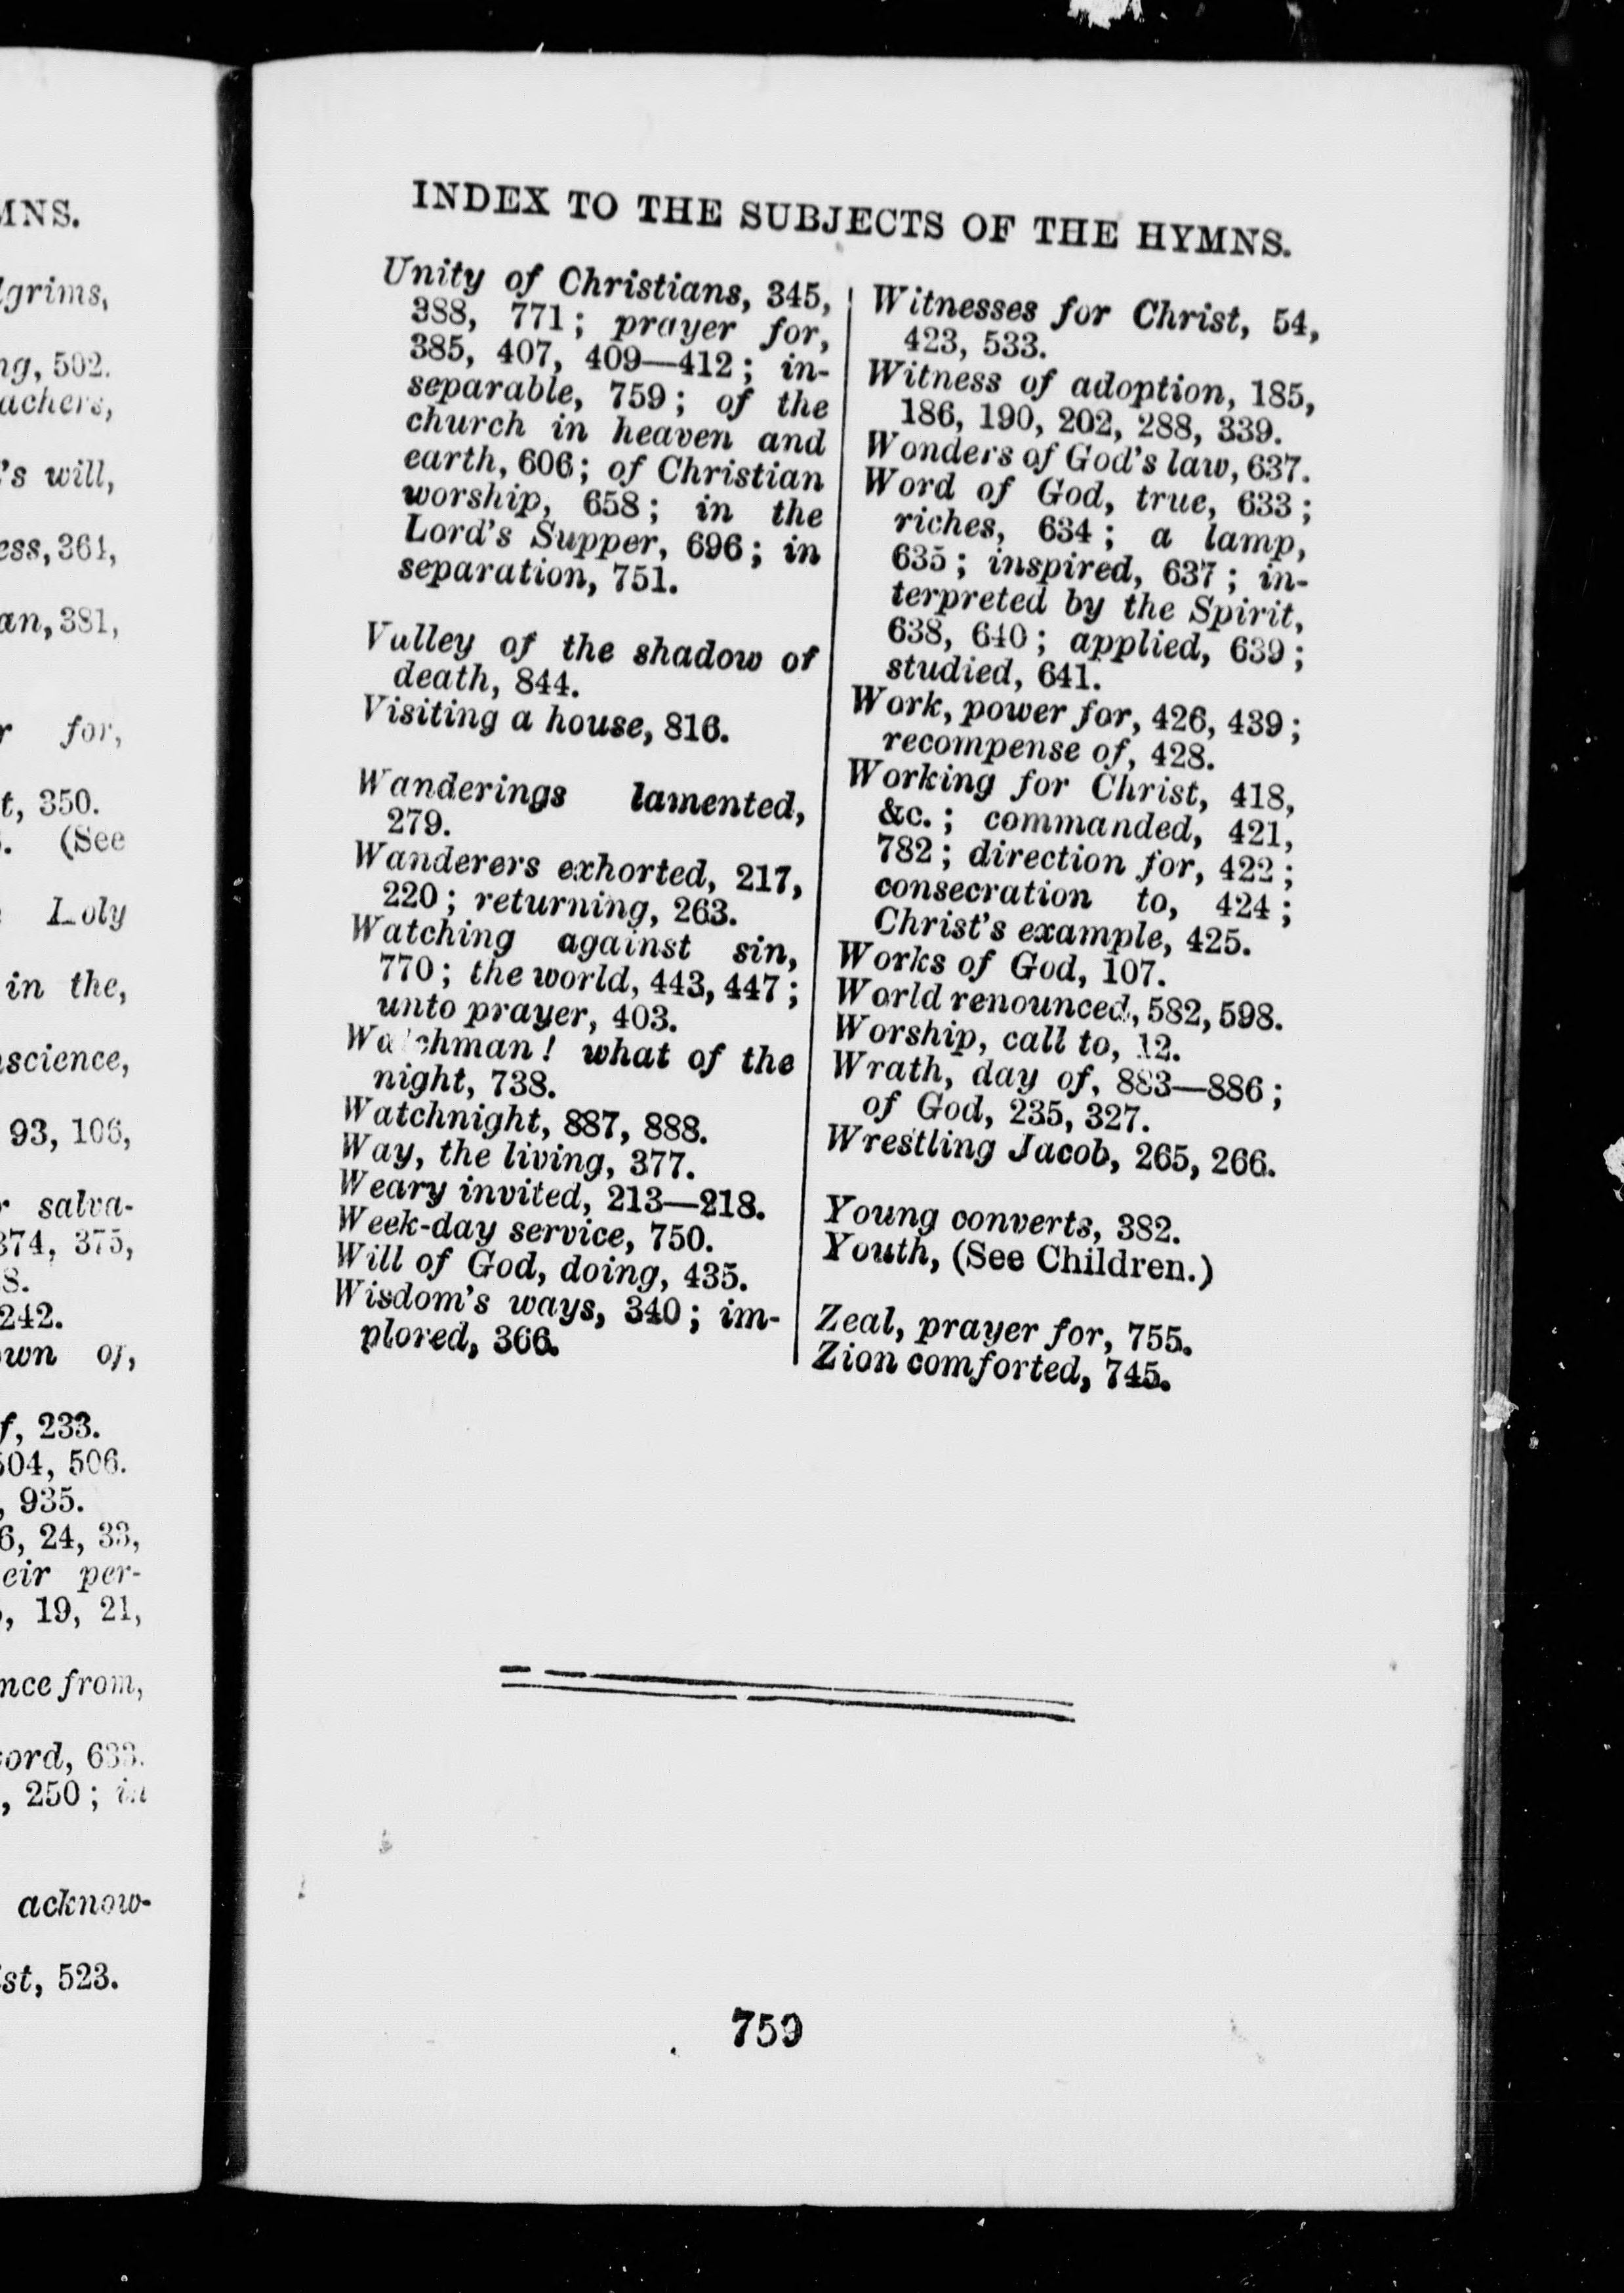 MNS.
grims,
502.
achers,
's will,
ess, 361,
an, 381,
for,
t, 350.
(See
in the,
science,
93, 106,
salva-
374, 375,
8.
242.
own of,
f, 233.
504, 506.
, 935.
6, 24, 33,
eir per-
, 19, 21,
nce from,
ord, 633.
, 250; in
acknow-
st, 523.
INDEX TO THE SUBJECTS OF THE HYMNS.
Unity of Christians, 345,
388, 771; prayer for,
385, 407, 409—412; in-
separable, 759; of the
church in heaven and
earth, 606; of Christian
worship, 658; in the
Lord's Supper, 696; in
separation, 751.
Valley of the shadow of
death, 844.
Visiting a house, 816.
Wanderings lamented,
279.
Wanderers exhorted, 217,
220; returning, 263.
Watching against sin,
770; the world, 443, 447;
unto prayer, 403.
Watchman! what of the
night, 738.
Watchnight, 887, 888.
Way, the living, 377.
Weary invited, 213—218.
Week-day service, 750.
Will of God, doing, 435.
Wisdom's ways, 340; im-
plored, 366.
Witnesses for Christ, 54,
423, 533.
Witness of adoption, 185,
186, 190, 202, 288, 339.
Wonders of God's law, 637.
Word of God, true, 633;
riches, 634; a lamp,
635; inspired, 637; in-
terpreted by the Spirit,
638, 640; applied, 639;
studied, 641.
Work, power for, 426, 439;
recompense of, 428.
Working for Christ, 418,
&c.; commanded, 421,
782; direction for, 422;
consecration to, 424;
Christ's example, 425.
Works of God, 107.
World renounced, 582, 598.
Worship, call to, 12.
Wrath, day of, 883—886;
of God, 235, 327.
Wrestling Jacob, 265, 266.
Young converts, 382.
Youth, (See Children.)
Zeal, prayer for, 755.
Zion comforted, 745.
759